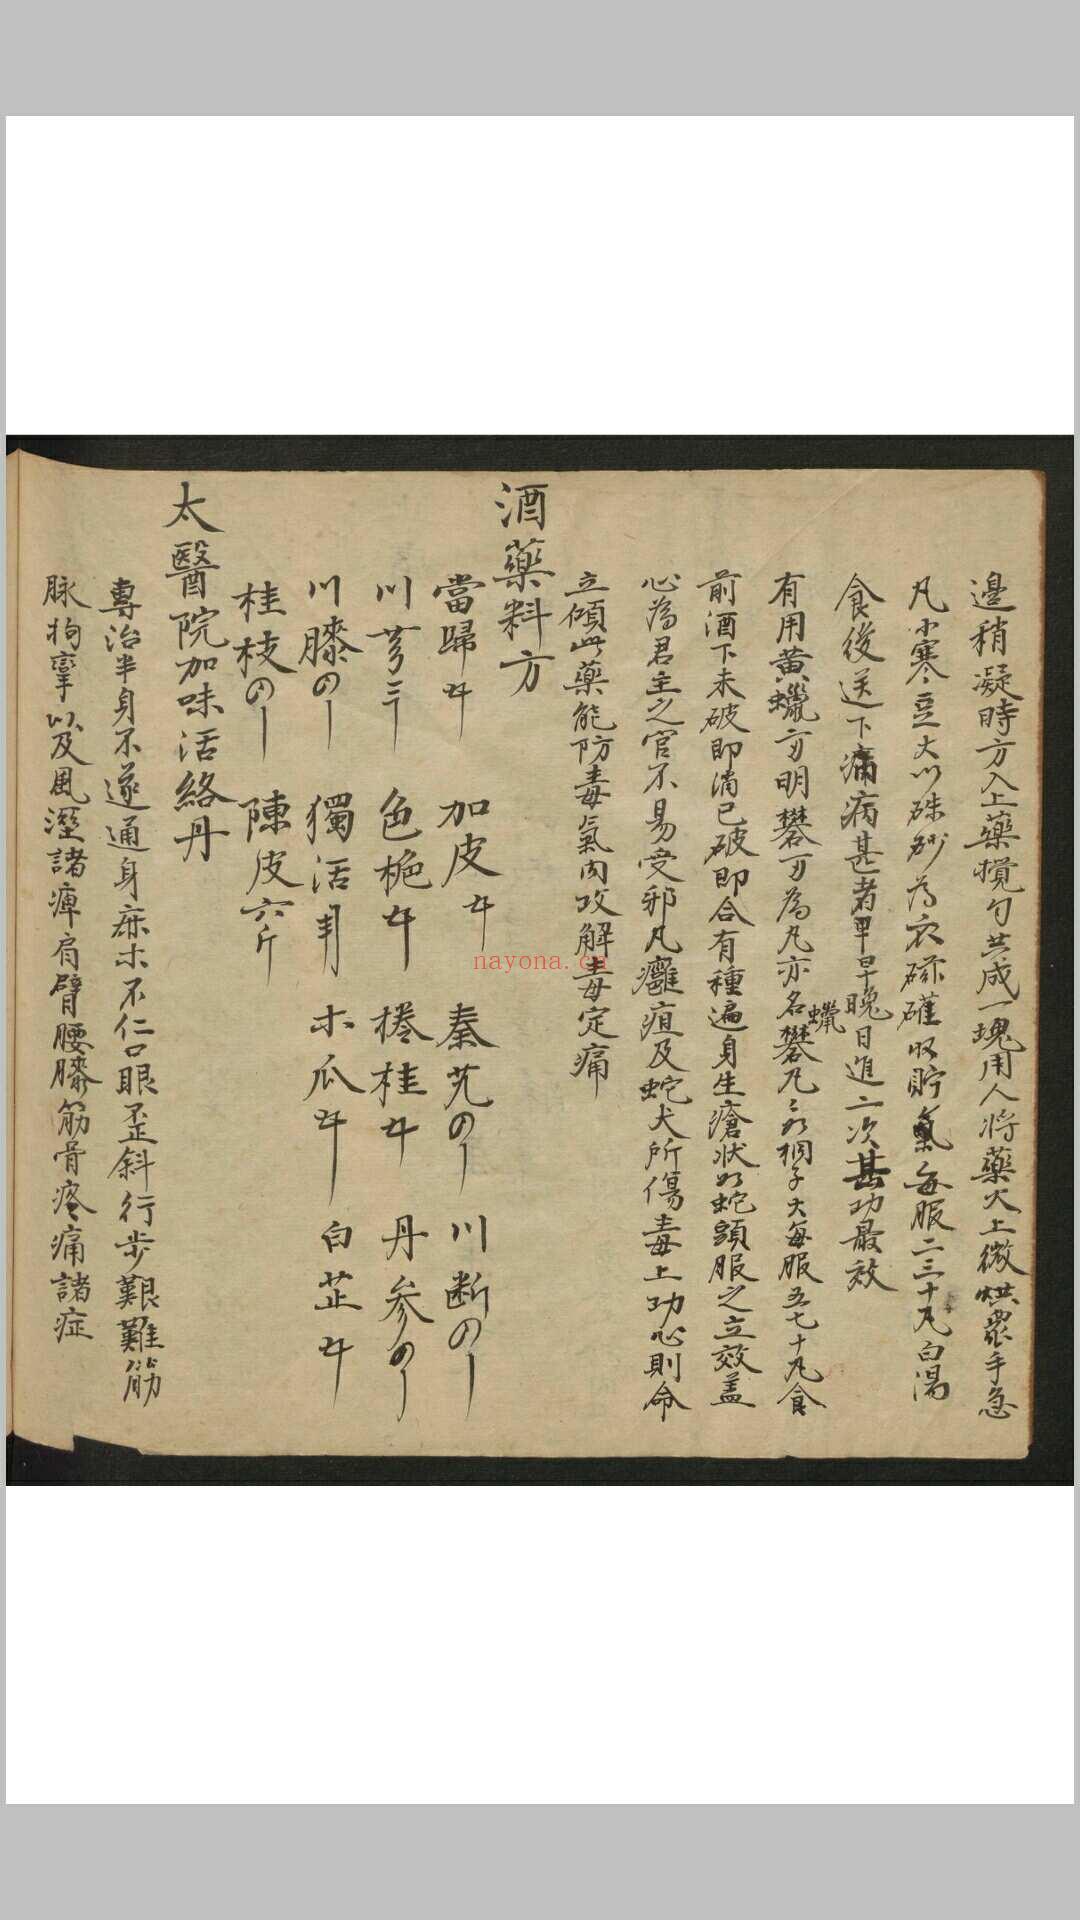 邉稍凝時方入上藥攪勻共成一塊用人將藥火上微烘眾手急
凡小寒豆大以硃砂為衣磁礶收貯每服二三十凡白湯
食後送下病甚者早晚日進二次其功最效
有用黄蠟明礬為凡亦名蠟礬凡桐子大每服五七十凡食
前酒下未破即消已破即合有種遍身生瘡狀如蛇頭服之立效盖
心為君主之官不易受邪凡癰疽及蛇犬所傷毒上功心則命
立傾此藥能防毒氣内攻解毒定痛
酒藥料方
當歸 加皮 秦艽 川断
川芎 色梔 捲桂 丹參
川膝 獨活 木瓜 白芷
桂枝 陳皮六斤
太醫院加味活絡丹
專治半身不遂通身麻木不仁口眼歪斜行步艱難筋
脉拘攣以及風溼諸痺肩臂腰膝筋骨疼痛諸症
nayona.cn